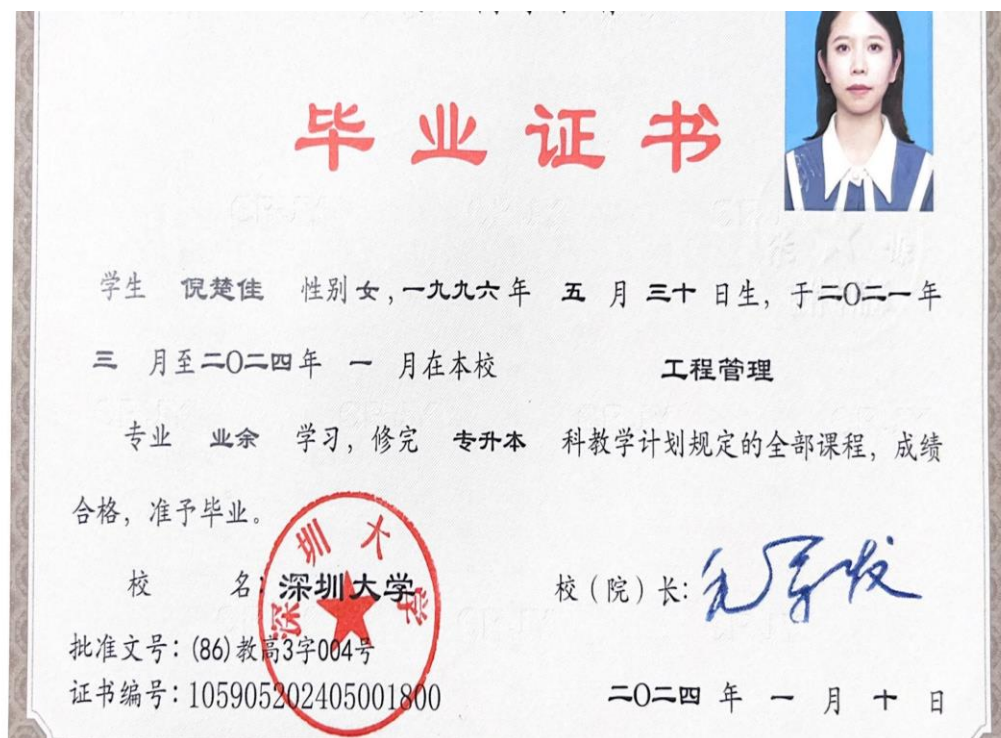 毕业证书
学生 倪楚佳 性别女,一九九六年 五 月 三十 日生, 于二〇二一年
三 月至二〇二四年 一 月在本校 工程管理
专业 业余 学习, 修完 专升本 科教学计划规定的全部课程, 成绩
合格, 准予毕业。
校 名: 深圳大学
深圳大学
校(院)长: 毛军发
批准文号: (86)教高3字004号
证书编号: 105905202405001800
二〇二四 年 一 月 十 日